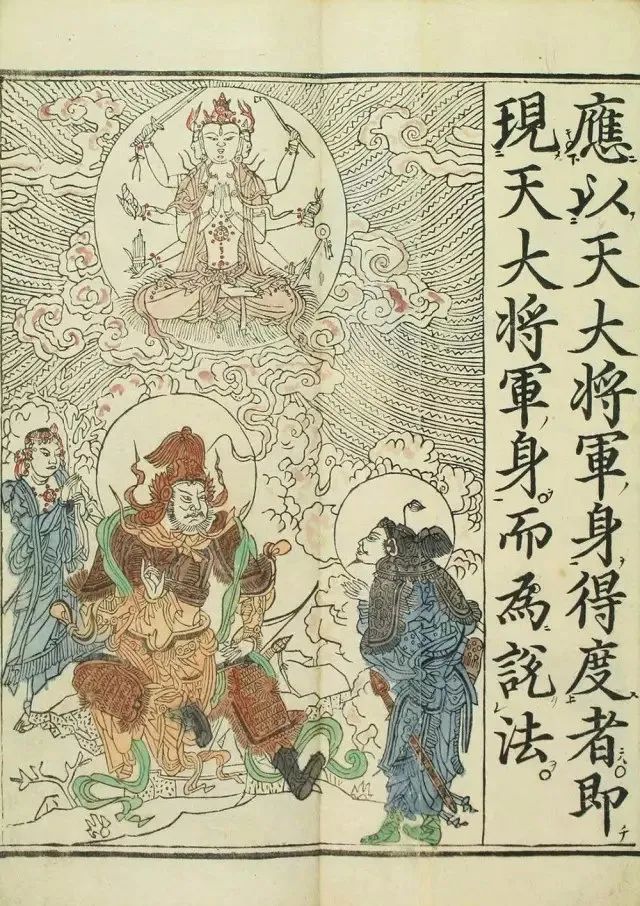 應以天大将軍身得度者即
現天大将軍身而為說法